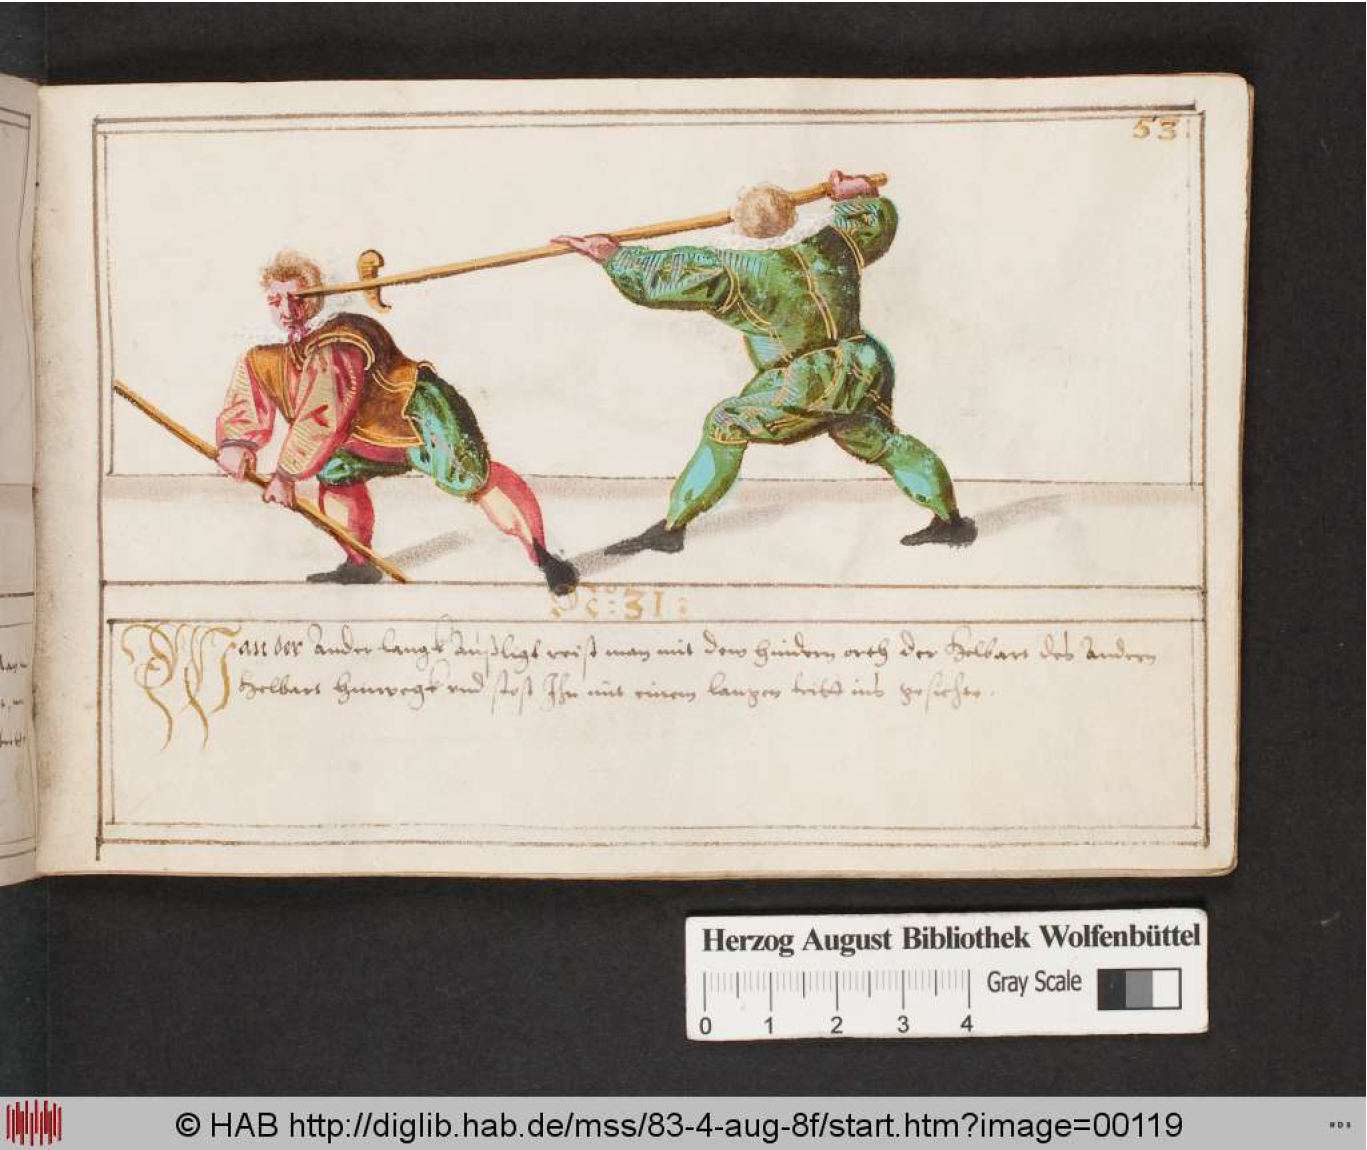 53
No: 31:
Wan der Ander langk Außligt reist man mit dem hindern orth der Helbart des Andern
Helbart hinwegk vnd stost Ihn mit einem langen tritt ins gesichte.
Herzog August Bibliothek Wolfenbüttel
Gray Scale
0 1 2 3 4
© HAB http://diglib.hab.de/mss/83-4-aug-8f/start.htm?image=00119